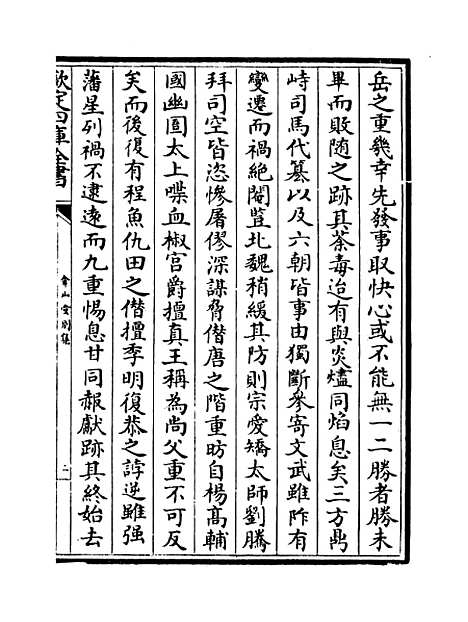 岳之重幾幸先發事取快心或不能無一二勝者勝未
畢而敗随之跡其荼毒迨有與炎爐同焰息矣三方鼎
峙司馬代篡以及六朝皆事由獨斷參寄文武雖阼有
變遷而禍絶閹豎北魏稍緩其防則宗愛矯太師劉騰
拜司空皆恣慘屠僇深謀脅僭唐之階重昉自楊髙輔
國幽圄太上喋血椒宫爵擅真王稱為尚父重不可反
矣而後復有程魚仇田之僭擅季明復恭之誖逆雖强
藩星列禍不逮逺而九重惕息甘同赧獻跡其終始去
欽定四庫全書
弇山堂别集
二